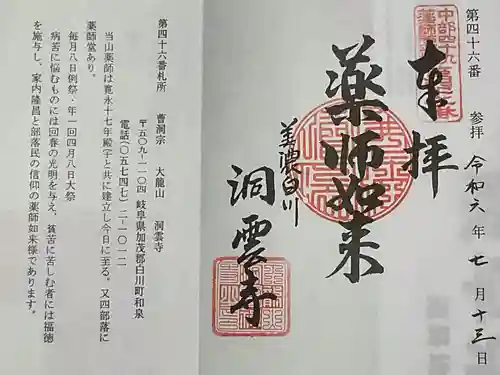 第四十六番
参拝 令和六年七月十三日
奉拝
薬師如来
美濃白川
洞雲寺
第四十六番札所 曹洞宗 大龍山 洞雲寺
〒五〇九-一一〇四 岐阜県加茂郡白川町和泉
電話(〇五七四七)二-一〇一二
当山薬師は寛永十七年殿宇と共に建立し今日に至る。又四部落に
薬師堂あり。
毎月八日例祭・年一回四月八日大祭
病苦に悩むものには回春の光明を与え、貧苦に苦しむ者には福徳
を施与し、家内隆昌と部落民の信仰の薬師如来様であります。